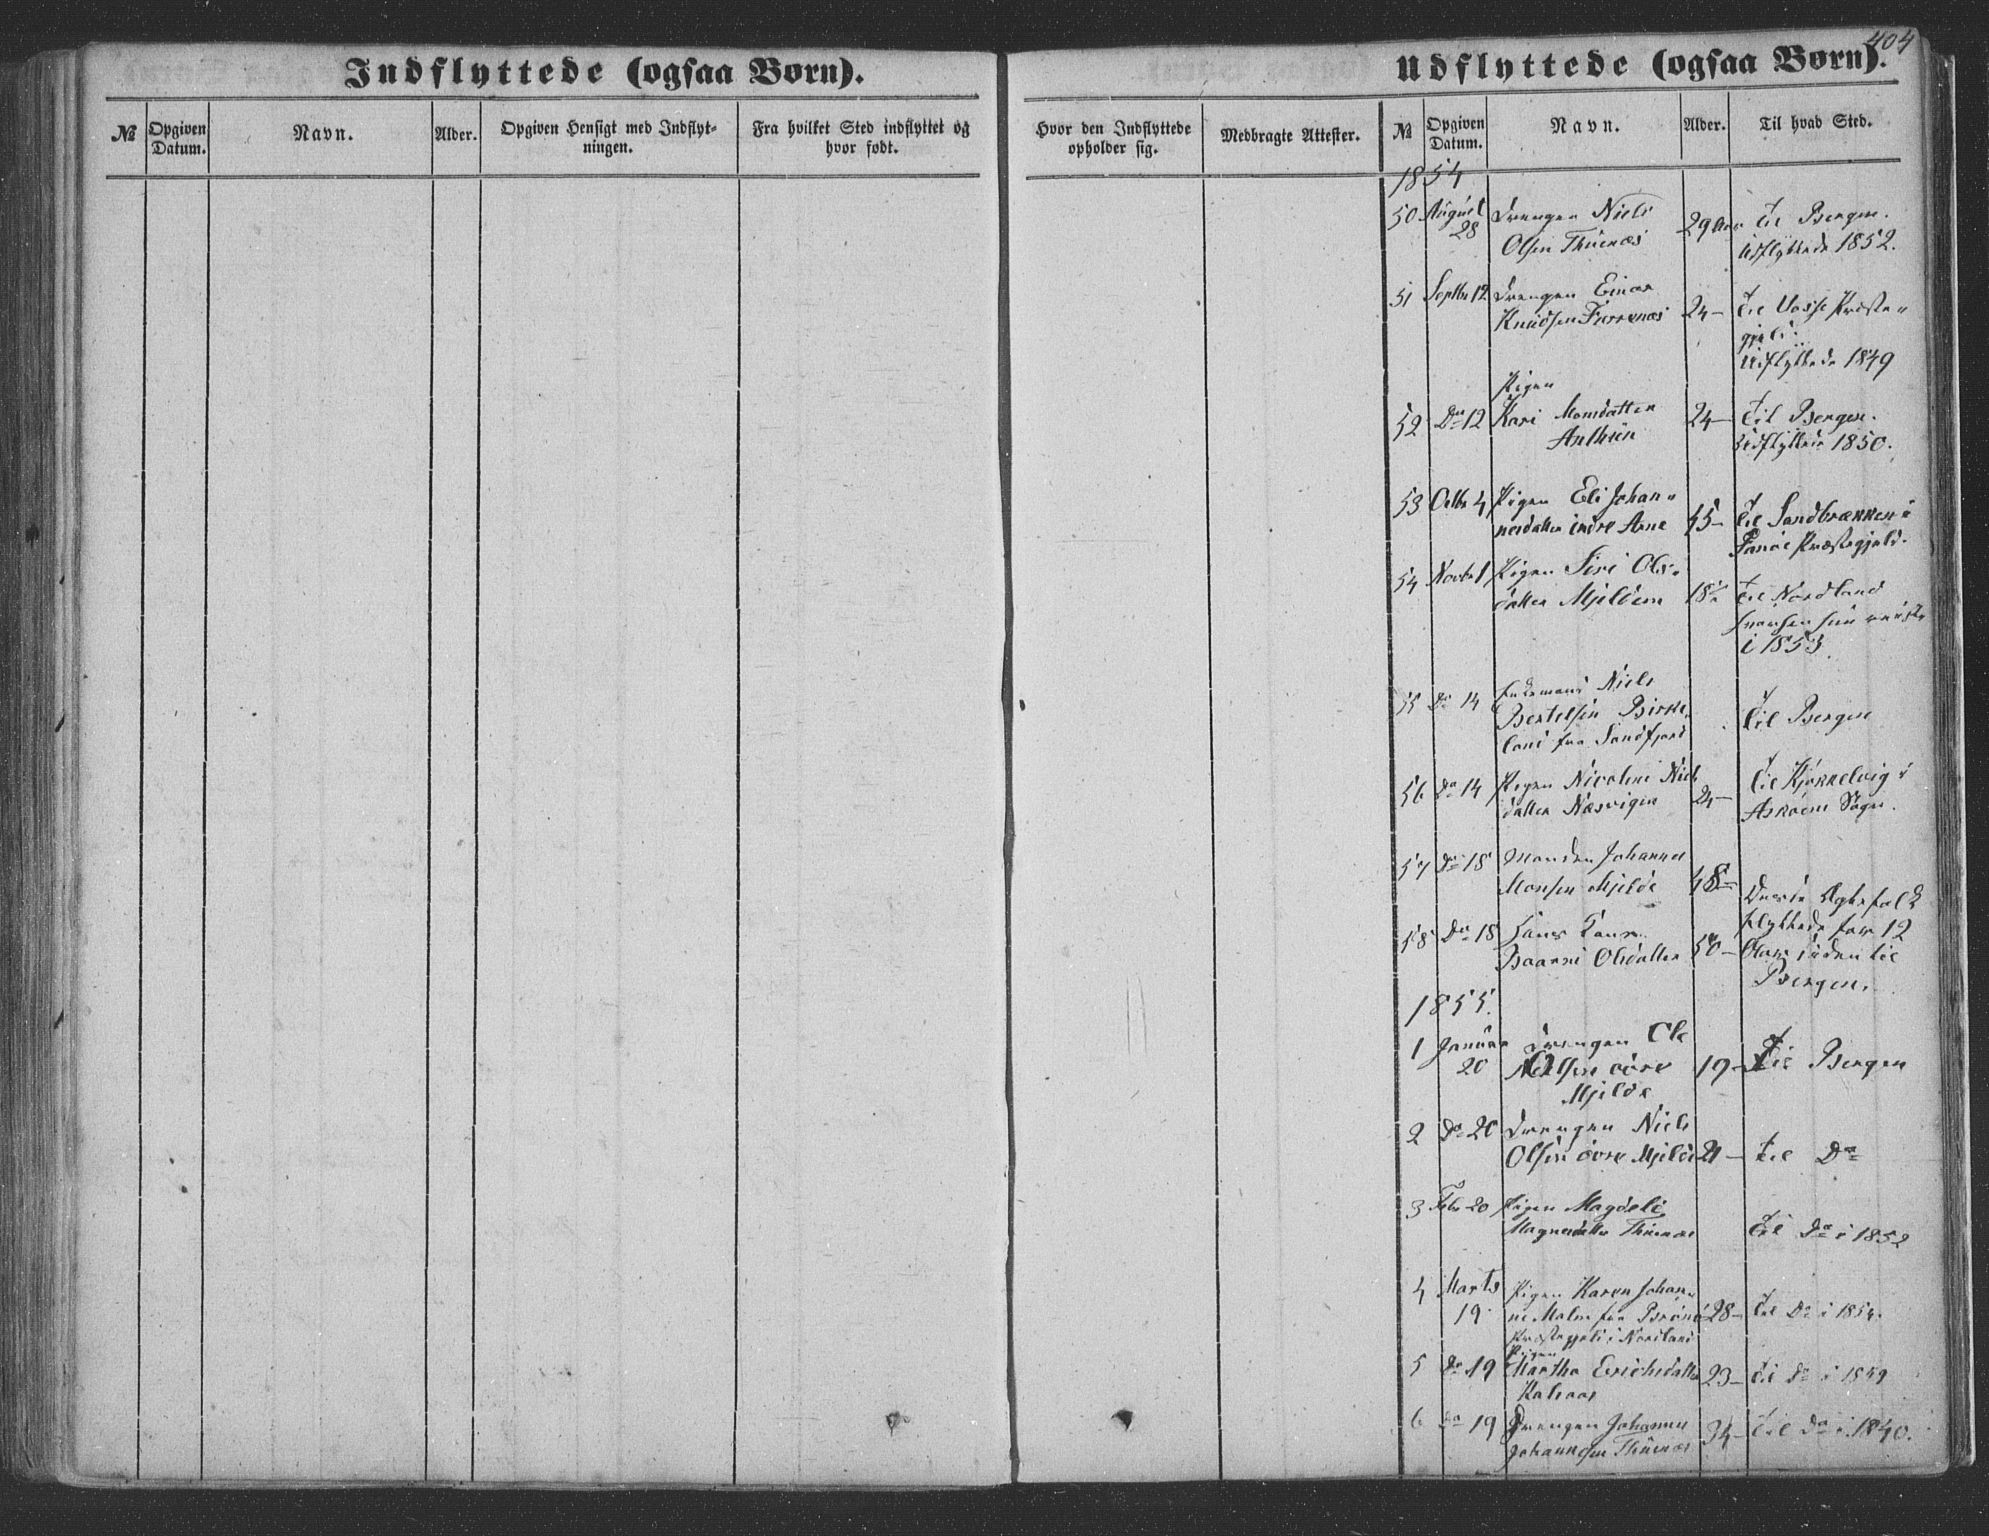 404
Indflyttede (ogsaa Børn).
Udflyttede (ogsaa Børn).
No
Opgiven Datum.
Navn.
Alder.
Opgiven Hensigt med Indflyt-
ningen.
Fra hvilket Sted indflyttet og
hvor født.
Hvor den Indflyttede
opholder sig.
Medbragte Attester.
No
Opgiven Datum.
Navn.
Alder.
Til hvad Sted.
1854
50 August 28 Drengen Niels
Olsen Thuenæs 29 Aar til Bergen.
Udflyttede 1852.
51 Septbr 12 Drengen Einar
Knudsen Furrenæs 24- til Vosse Præste-
gjeld.
Udflyttede 1849
Pigen
52 Do 12 Kari Monsdatter 24- til Bergen.
Udflyttede 1850.
53 Octbr 4 Pigen Eli Johan-
nesdatter indre Arne 45- til Sandbrækken i
Fanøe Præstegjeld.
54 Novbr 1 Pigen Siri Ols-
datter Mjeldem 18½ til Nordland
hvorhen hun reiste
i 1853.
55 Do 14 Niels
Bertelsen Birke-
land fra Sandfjord til Bergen
56 Do 14 Pigen Nicoline Niels
datter Næsvigen 24- til Kjøkkelvig i
Askøens Sogn.
57 Do 18 Manden Johannes
Monsen Mjelde 48-
58 Do 18 Hans Kone
Olsdatter 50-
Disse Ægtefolk
flyttede for 12
Aar siden til
Bergen.
1855.
1 Januar 20 Drengen Ole
Nielsen øvre
Mjelde 19- til Bergen
2 Do 20 Drengen Niels
Olsen øvre Mjelde 21- til Do
3 Febr 20 Pigen Magdeli
Magnesdatter Thuenæs til Do i 1852
4 Marts 19 Pigen Karen Johan-
ne Malm fra Brønøe 28- til Do i 1854.
Præstegjeld i Nordland
Pigen
5 Do 19 Martha Erichsdatter 23- til Do i 1849
Kalsaas
6 Do 19 Drengen Johannes
Johannesen Thuenæs 34- til Do i 1840.